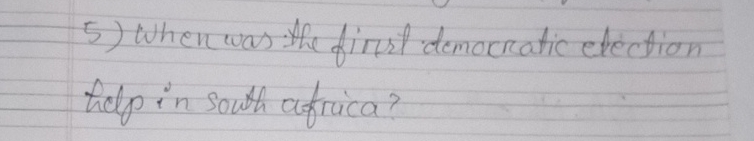 5) When was the first democratic election
help in south africa?